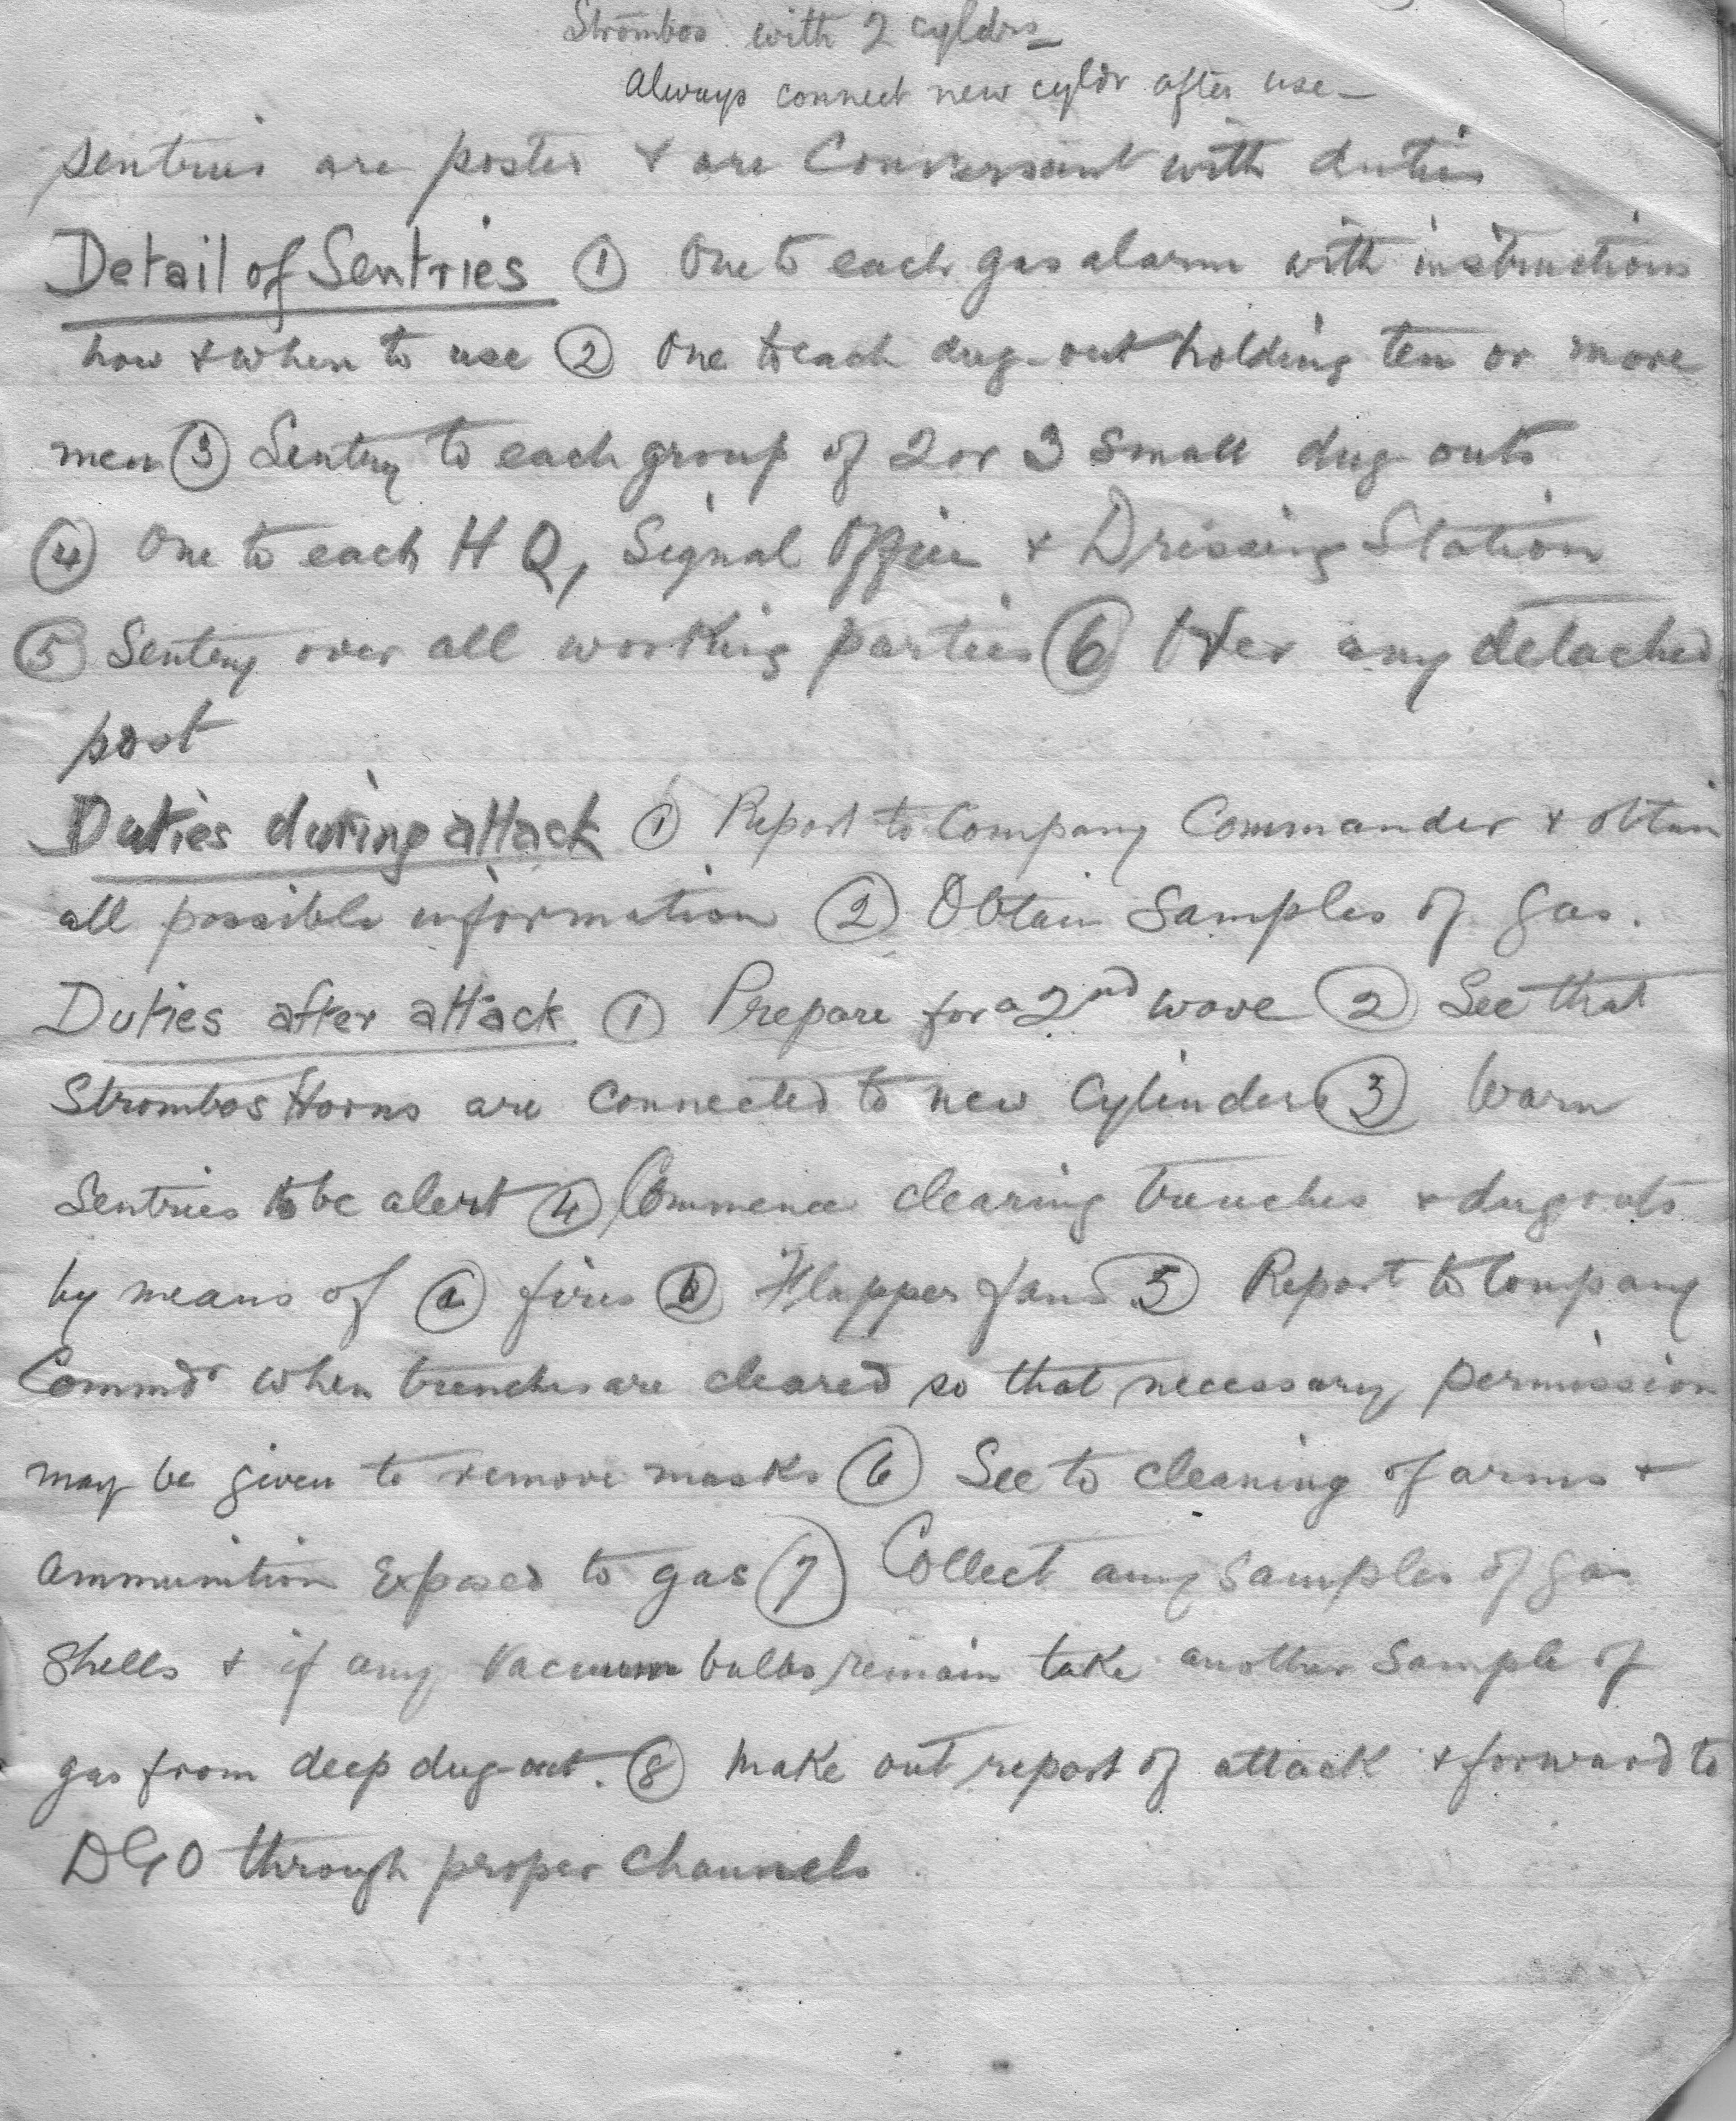 Strombos with 2 cyldrs –
Always connect new cyldr after use –
sentries are posted & are Conversant with duties
Detail of Sentries ① One to each gas alarm with instructions
how & when to use ② One to each dug-out holding ten or more
men ③ Sentry to each group of 2 or 3 small dug outs
④ One to each H Q, Signal Office & Dressing Station
⑤ Sentry over all working parties ⑥ Over any detached
post
Duties during attack ① Report to Company Commander & obtain
all possible information ② Obtain Samples of gas.
Duties after attack ① Prepare for a 2nd wave ② See that
Strombos Horns are connected to new Cylinders ③ Warn
Sentries to be alert ④ Commence clearing trenches & dugouts
by means of ⓐ fires ⓑ Flapper fans ⑤ Report to Company
Commdr when trenches are cleared so that necessary permission
may be given to remove masks ⑥ See to cleaning of arms &
ammunition Exposed to gas ⑦ Collect any samples of gas
Shells & if any Vacuum bulbs remain take another Sample of
gas from deep dug-out. ⑧ Make out report of attack & forward to
DGO through proper channels